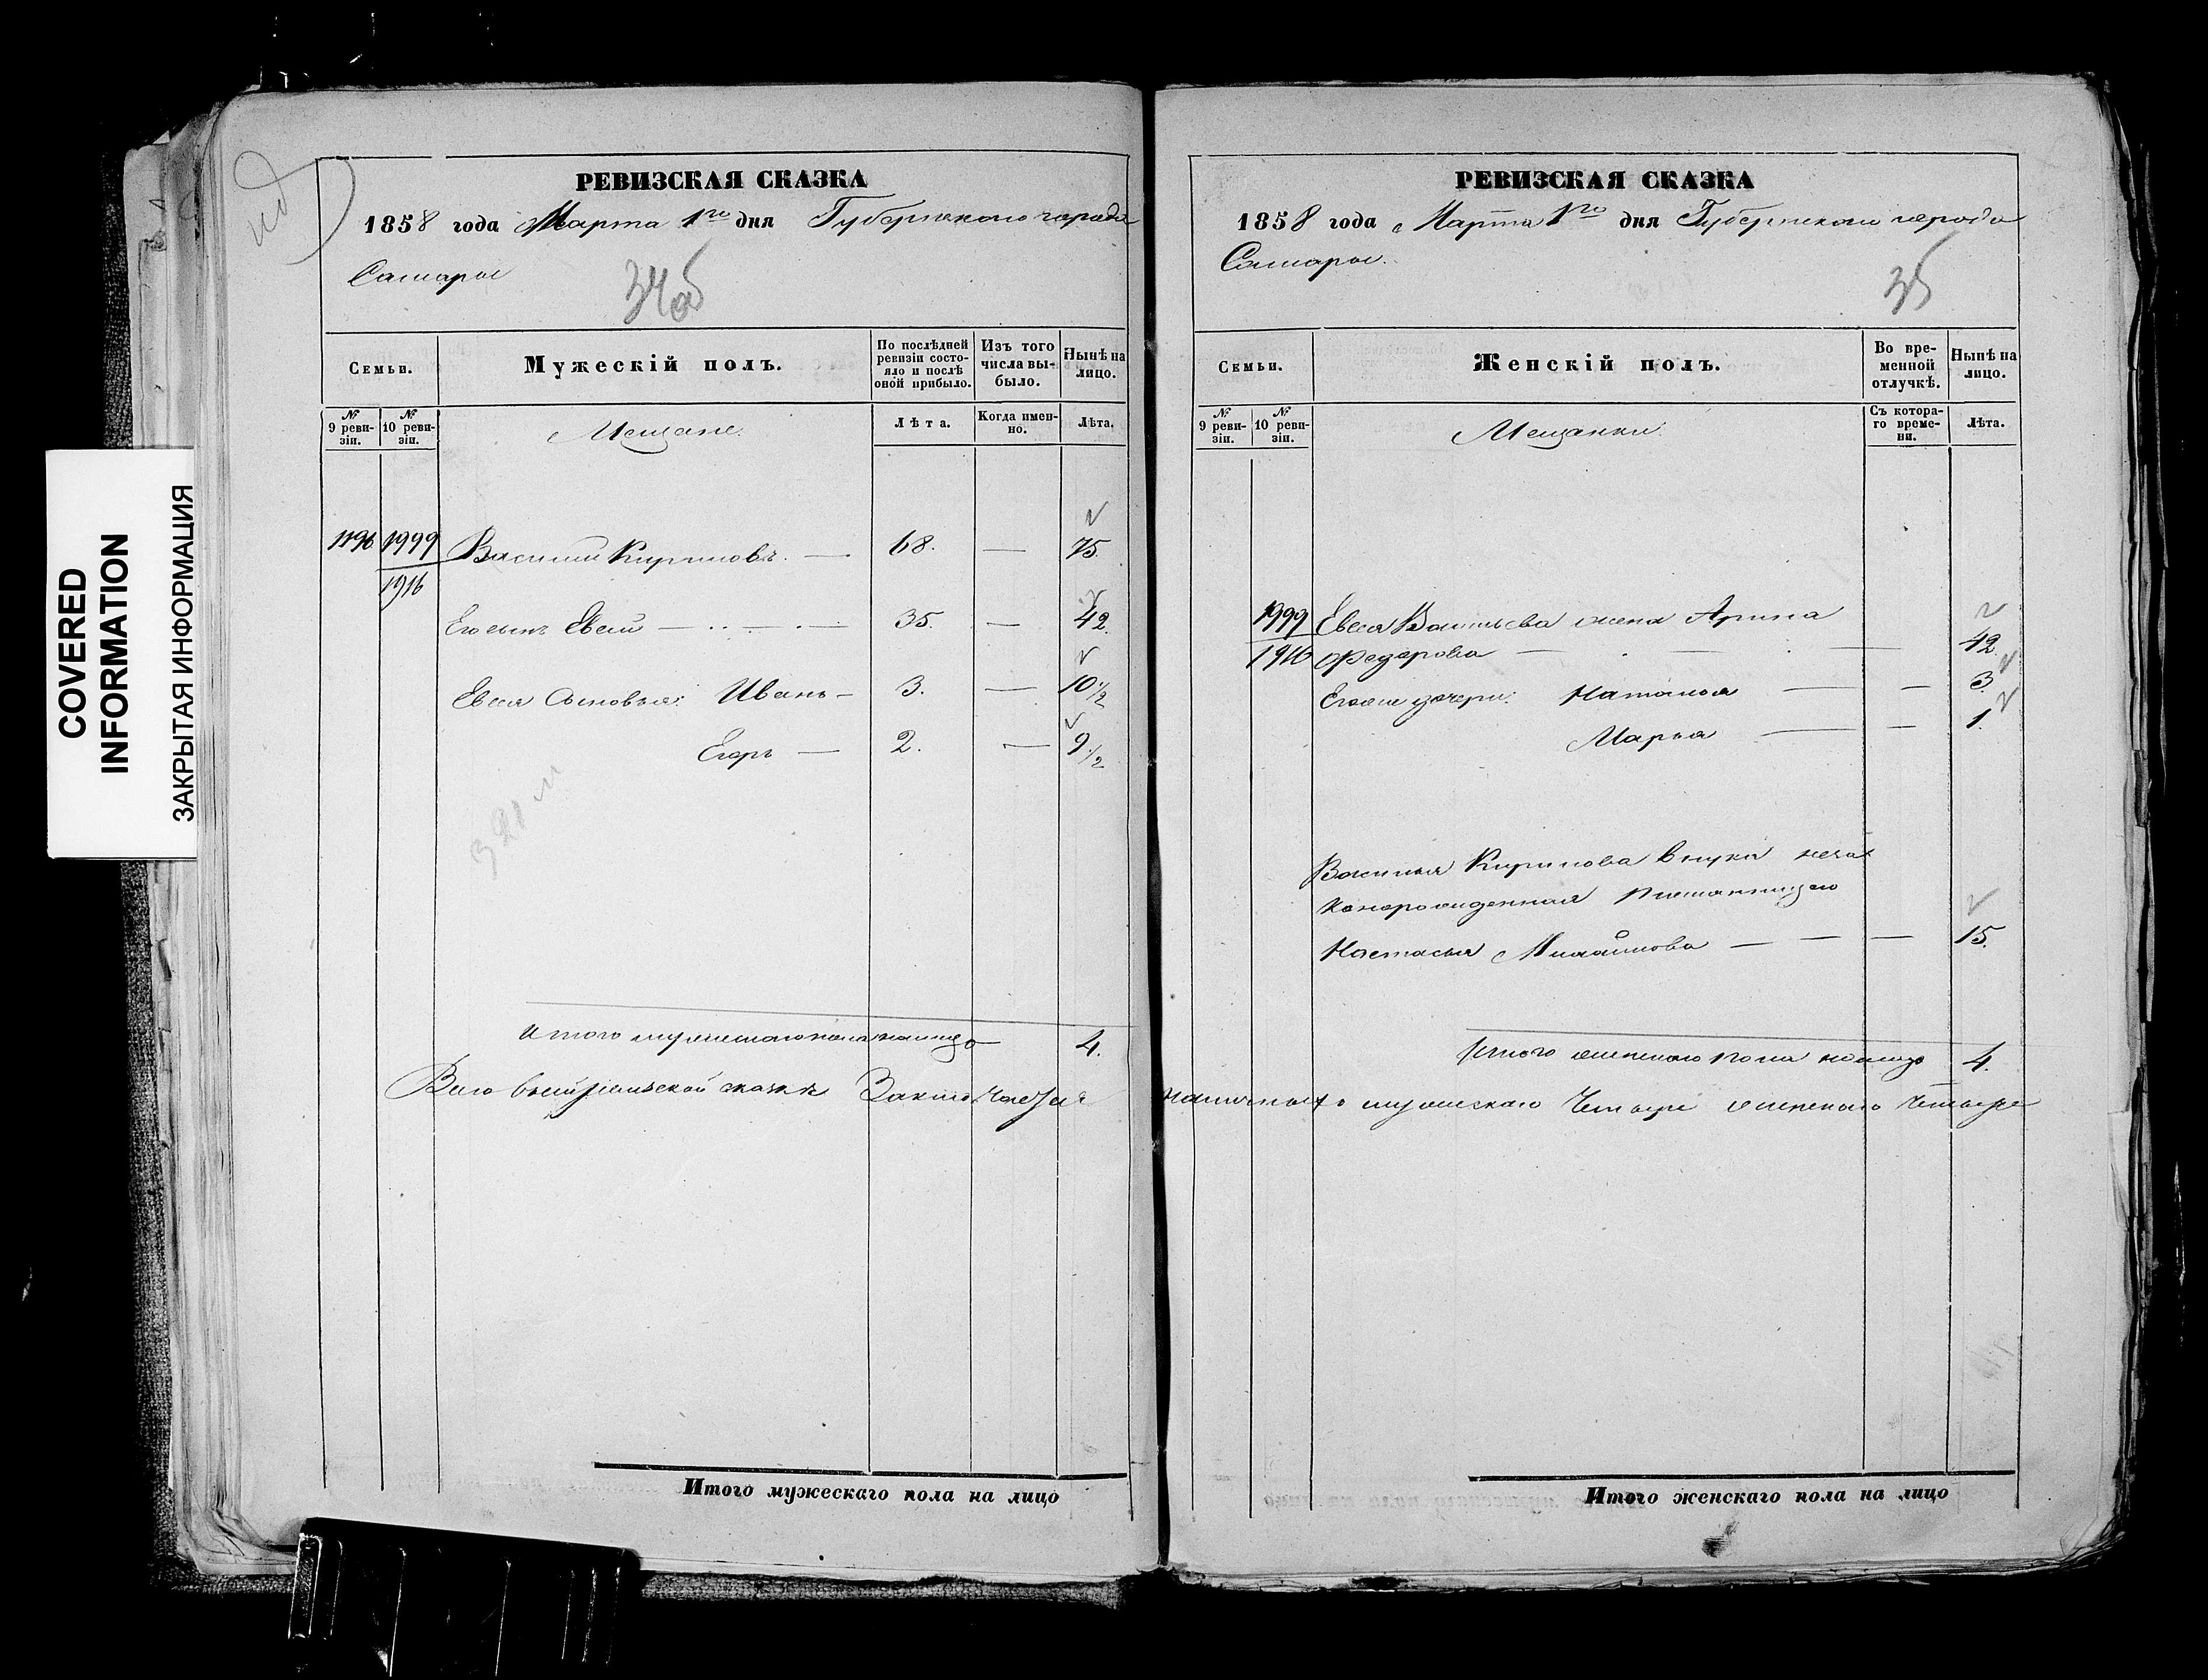 COVERED
INFORMATION
ЗАКРЫТАЯ ИНФОРМАЦИЯ
РЕВИЗСКАЯ СКАЗКА
1858 года Марта 1го дня Губернскаго города
Самары
34об
Семьи.
Мужескій полъ.
По послѣдней ревизіи состояло и послѣ оной прибыло.
Изъ того числа выбыло.
Нынѣ на лицо.
№ 9 ревизіи.
№ 10 ревизіи.
Мещане.
Лѣта.
Когда именно.
Лѣта.
1999 Василий Кириловъ. — 68. — 75.
1916
Его сынъ Евсей — 35. — 42.
Евсея сыновья: Иванъ — 3. — 10 1/2
Егоръ — 2. — 9 1/2
Итого мужескаго пола налицо 4.
Всего въ сей ревизской сказке
Итого мужескаго пола на лицо
РЕВИЗСКАЯ СКАЗКА
1858 года Марта 1го дня Губернскаго города
Самары.
35
Семьи.
Женскій полъ.
Во временной отлучкѣ.
Нынѣ на лицо.
№ 9 ревизіи.
№ 10 ревизіи.
Мещанки.
Съ котораго времени.
Лѣта.
1999 Евсея Васильева жена Арина
1916 Федорова — 42.
Его же дочери: Наталья — — 3.
Марья — — 1.
Василья Кирилова внука неза
конорожденная
Настасья Михайлова — — — 15.
Итого женскаго пола налицо 4.
наличныхъ мужескаго четыре женскаго четыре
Итого женскаго пола на лицо